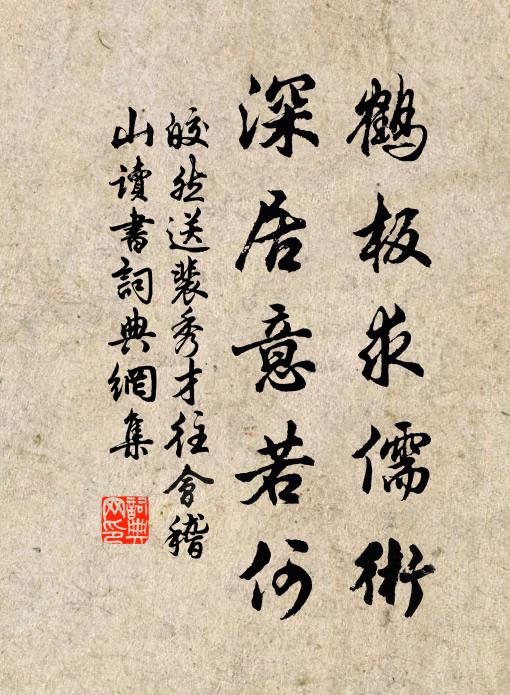 鶴板求儒術
深居意若何
皎然送裴秀才往會稽
山讀書詞典網集
詞典网印